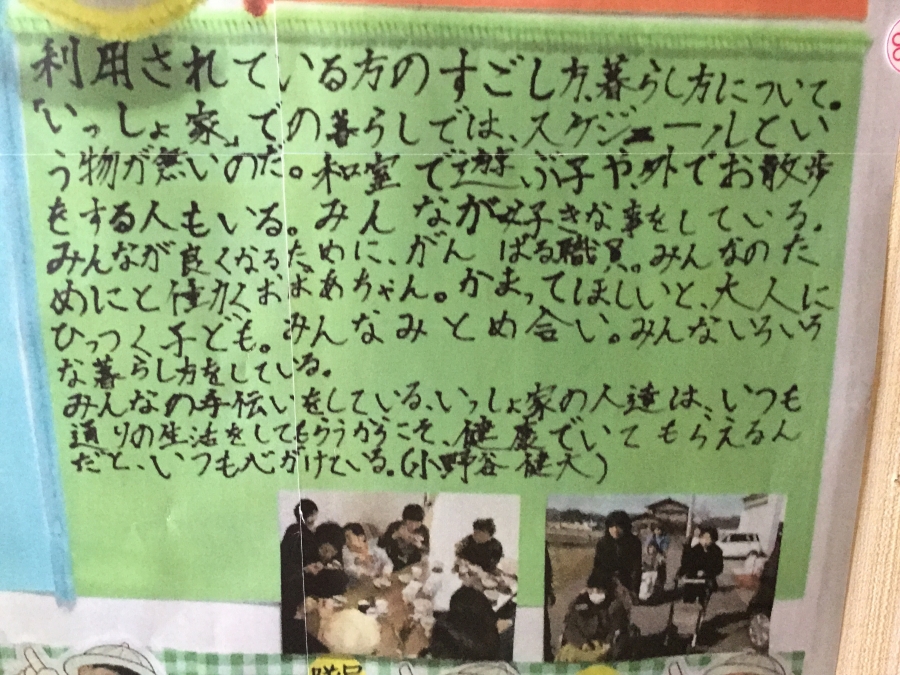 利用されている方のすごし方、暮らし方について。
「いっしょ家」での暮らしでは、スケジュールとい
う物が無いのだ。和室で遊ぶ子や、外でお散歩
をする人もいる。みんなが好きな事をしている。
みんなが良くなるために、がんばる職員。みんなのた
めにと働くおばあちゃん。かまってほしいと、大人に
ひっつく子ども。みんなみとめ合い。みんないろいろ
な暮らし方をしている。
みんなの手伝いをしている、いっしょ家の人達は、いつも
通りの生活をしてもらうからこそ、健康でいてもらえるん
だと、いつも心がけている。(小野谷健大)
隊員